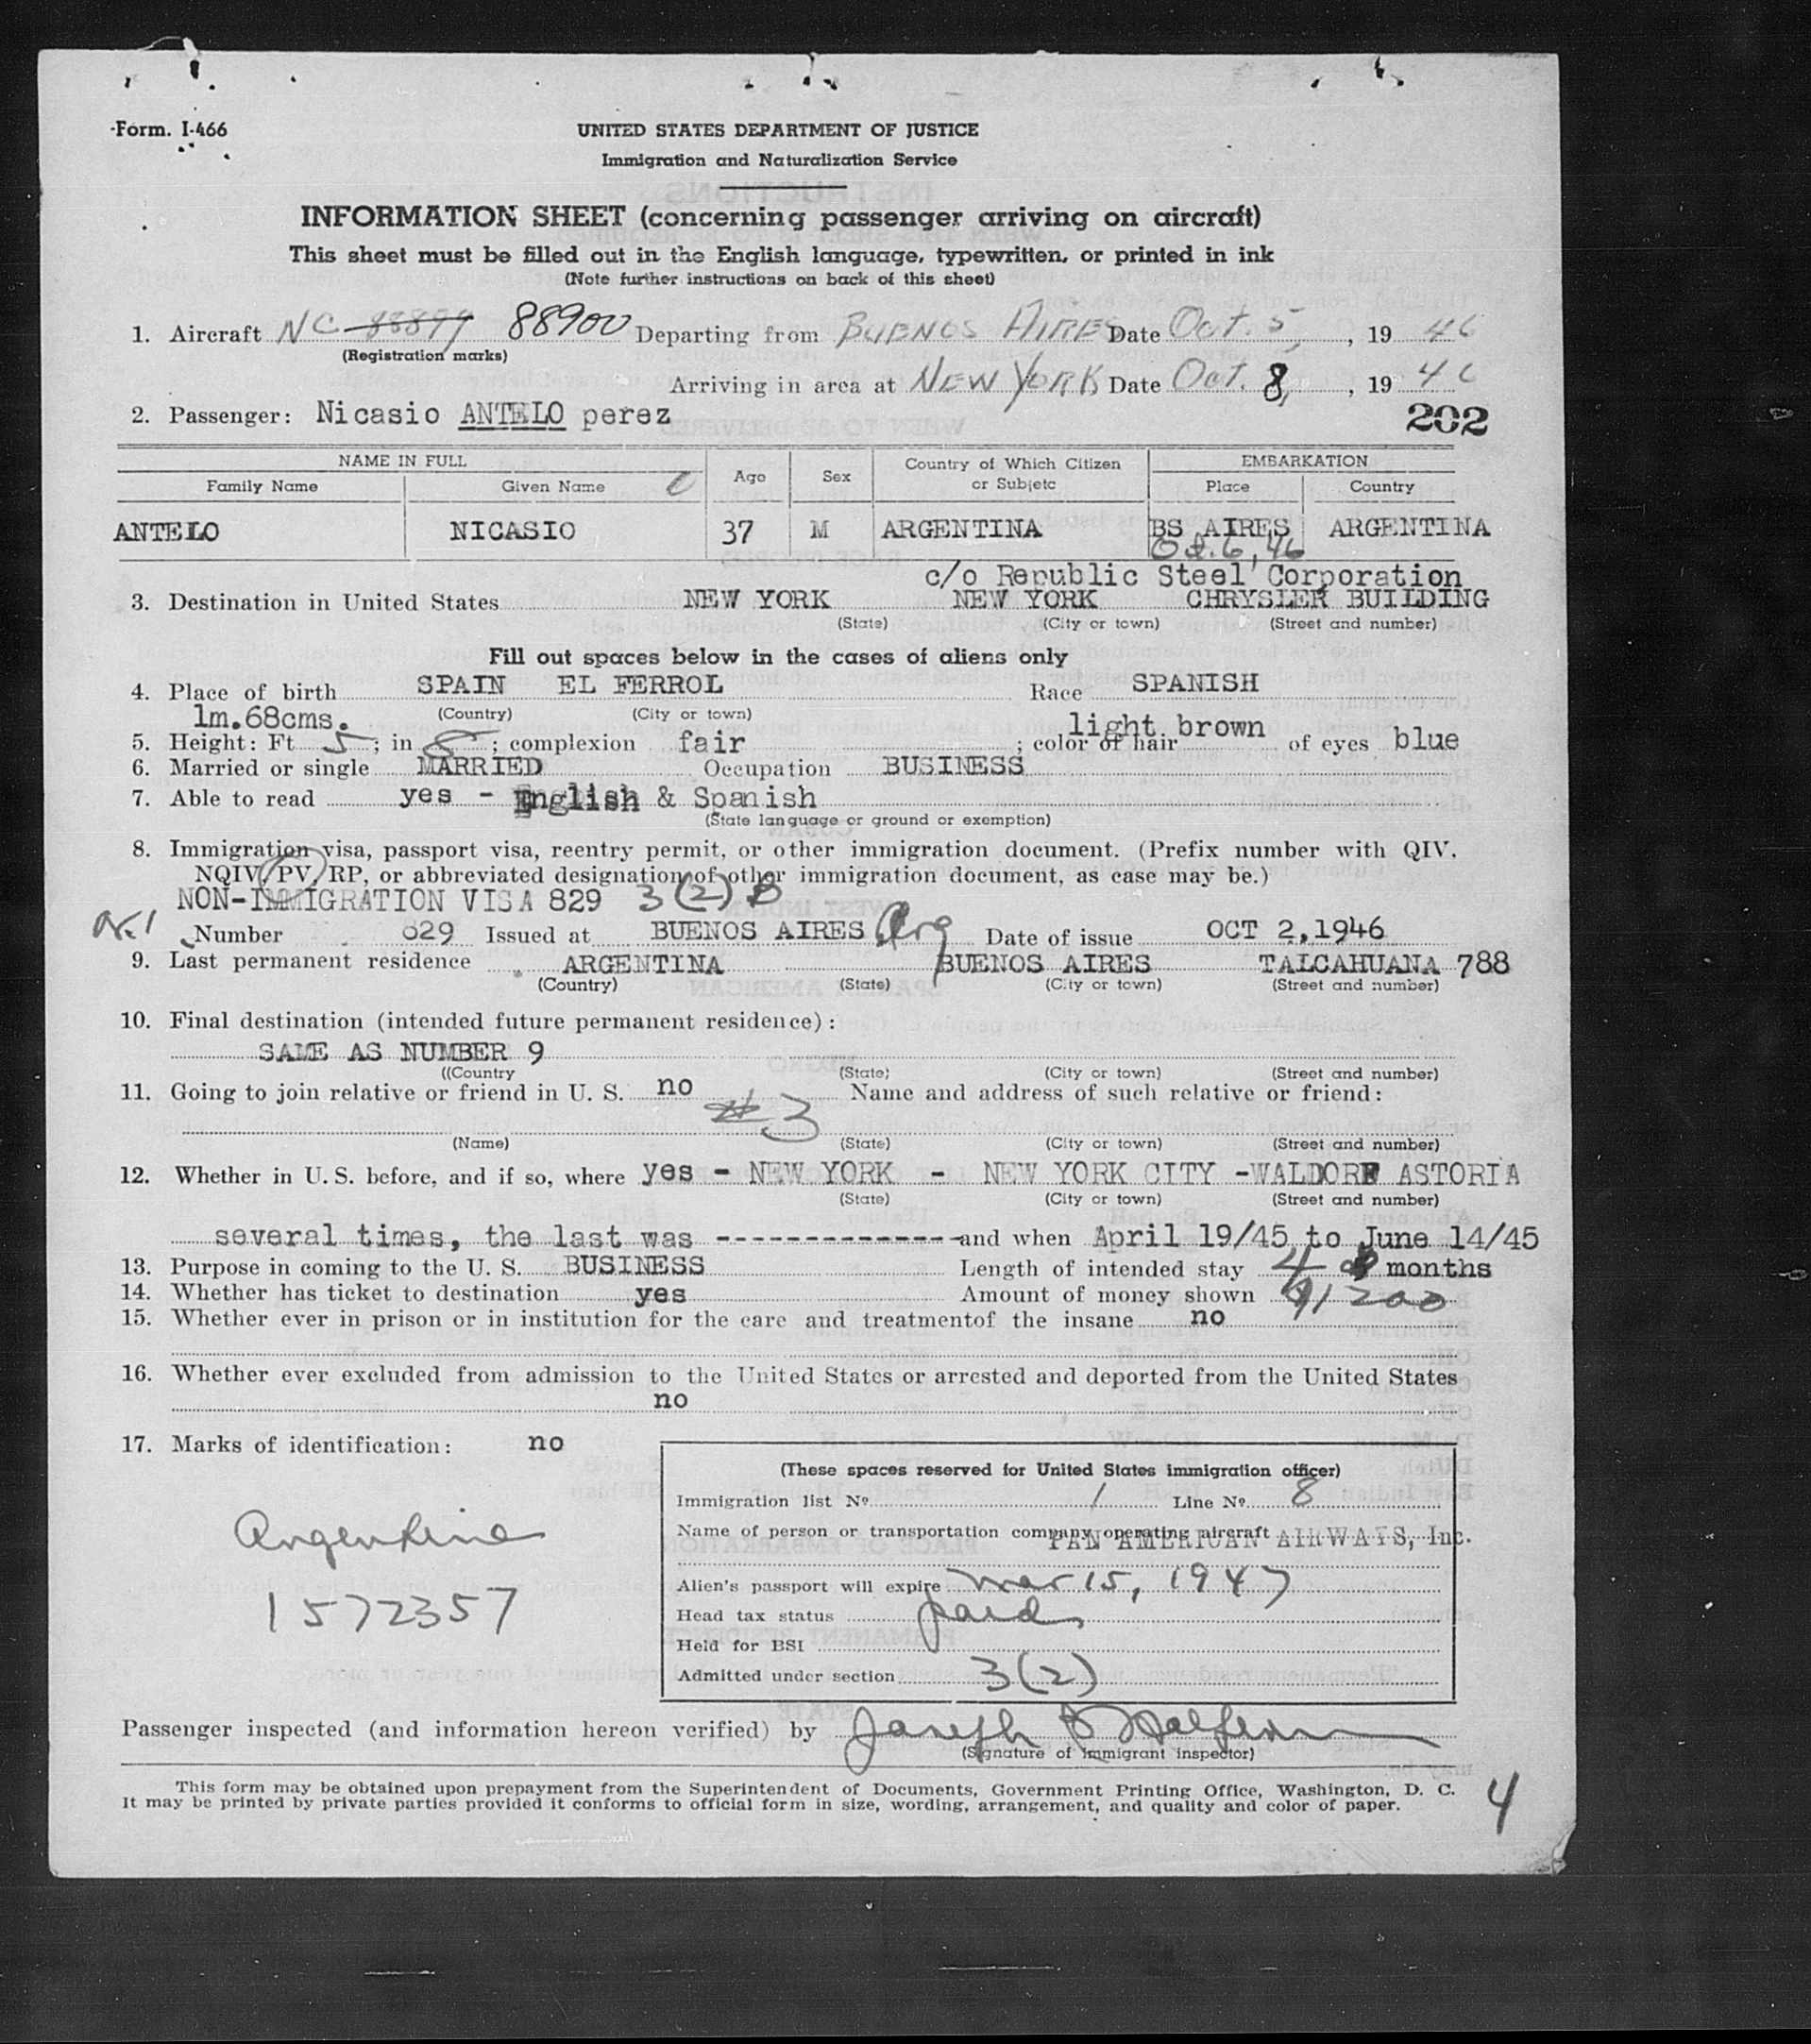 Form. I-466
UNITED STATES DEPARTMENT OF JUSTICE
Immigration and Naturalization Service
INFORMATION SHEET (concerning passenger arriving on aircraft)
This sheet must be filled out in the English language, typewritten, or printed in ink
(Note further instructions on back of this sheet)
1. Aircraft NC 88899 88900 Departing from BUENOS AIRES Date Oct. 5, 19 46
(Registration marks)
Arriving in area at NEW YORK Date Oct. 8, 19 46
2. Passenger: Nicasio ANTELO perez
202
NAME IN FULL Age Sex Country of Which Citizen or Subjetc EMBARKATION
Family Name Given Name Place Country
ANTELO NICASIO 37 M ARGENTINA BS AIRES ARGENTINA
Oct. 6, 46
c/o Republic Steel Corporation
3. Destination in United States NEW YORK NEW YORK CHRYSLER BUILDING
(State) (City or town) (Street and number)
Fill out spaces below in the cases of aliens only
4. Place of birth SPAIN EL FERROL Race SPANISH
(Country) (City or town)
1m.68cms.
5. Height: Ft 5; in 8; complexion fair; color of hair light brown of eyes blue
6. Married or single MARRIED Occupation BUSINESS
7. Able to read yes - English & Spanish
(State language or ground or exemption)
8. Immigration visa, passport visa, reentry permit, or other immigration document. (Prefix number with QIV,
NQIV, PV, RP, or abbreviated designation of other immigration document, as case may be.)
NON-IMMIGRATION VISA 829 3(2) B
Number 829 Issued at BUENOS AIRES Arg Date of issue OCT 2,1946
9. Last permanent residence ARGENTINA BUENOS AIRES TALCAHUANA 788
(Country) (State) (City or town) (Street and number)
10. Final destination (intended future permanent residence):
SAME AS NUMBER 9
((Country (State) (City or town) (Street and number)
11. Going to join relative or friend in U. S. no Name and address of such relative or friend:
#3
(Name) (State) (City or town) (Street and number)
12. Whether in U. S. before, and if so, where yes - NEW YORK - NEW YORK CITY -WALDORF ASTORIA
(State) (City or town) (Street and number)
several times, the last was --------------and when April 19/45 to June 14/45
13. Purpose in coming to the U. S. BUSINESS Length of intended stay 4 months
14. Whether has ticket to destination yes Amount of money shown 1200
15. Whether ever in prison or in institution for the care and treatmentof the insane no
16. Whether ever excluded from admission to the United States or arrested and deported from the United States
no
17. Marks of identification: no
Argentine
1572357
(These spaces reserved for United States immigration officer)
Immigration list Nº 1 Line Nº 8
Name of person or transportation company operating aircraft PAN AMERICAN AIRWAYS, Inc.
Alien's passport will expire Mar 15, 1947
Head tax status paid
Held for BSI
Admitted under section 3(2)
Passenger inspected (and information hereon verified) by Joseph
(Signature of immigrant inspector)
This form may be obtained upon prepayment from the Superintendent of Documents, Government Printing Office, Washington, D. C.
It may be printed by private parties provided it conforms to official form in size, wording, arrangement, and quality and color of paper.
4